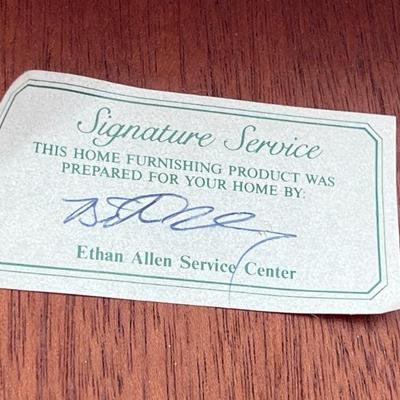 Signature Service
THIS HOME FURNISHING PRODUCT WAS
PREPARED FOR YOUR HOME BY:
Ethan Allen Service Center